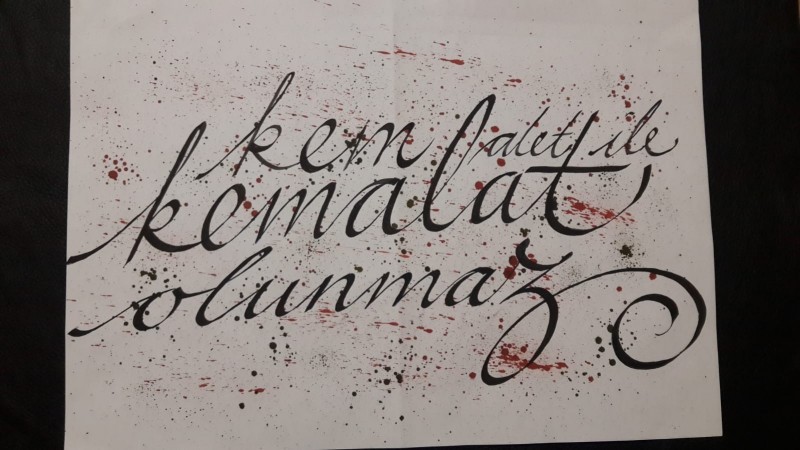 kem alet ile
kemalat
olunmaz